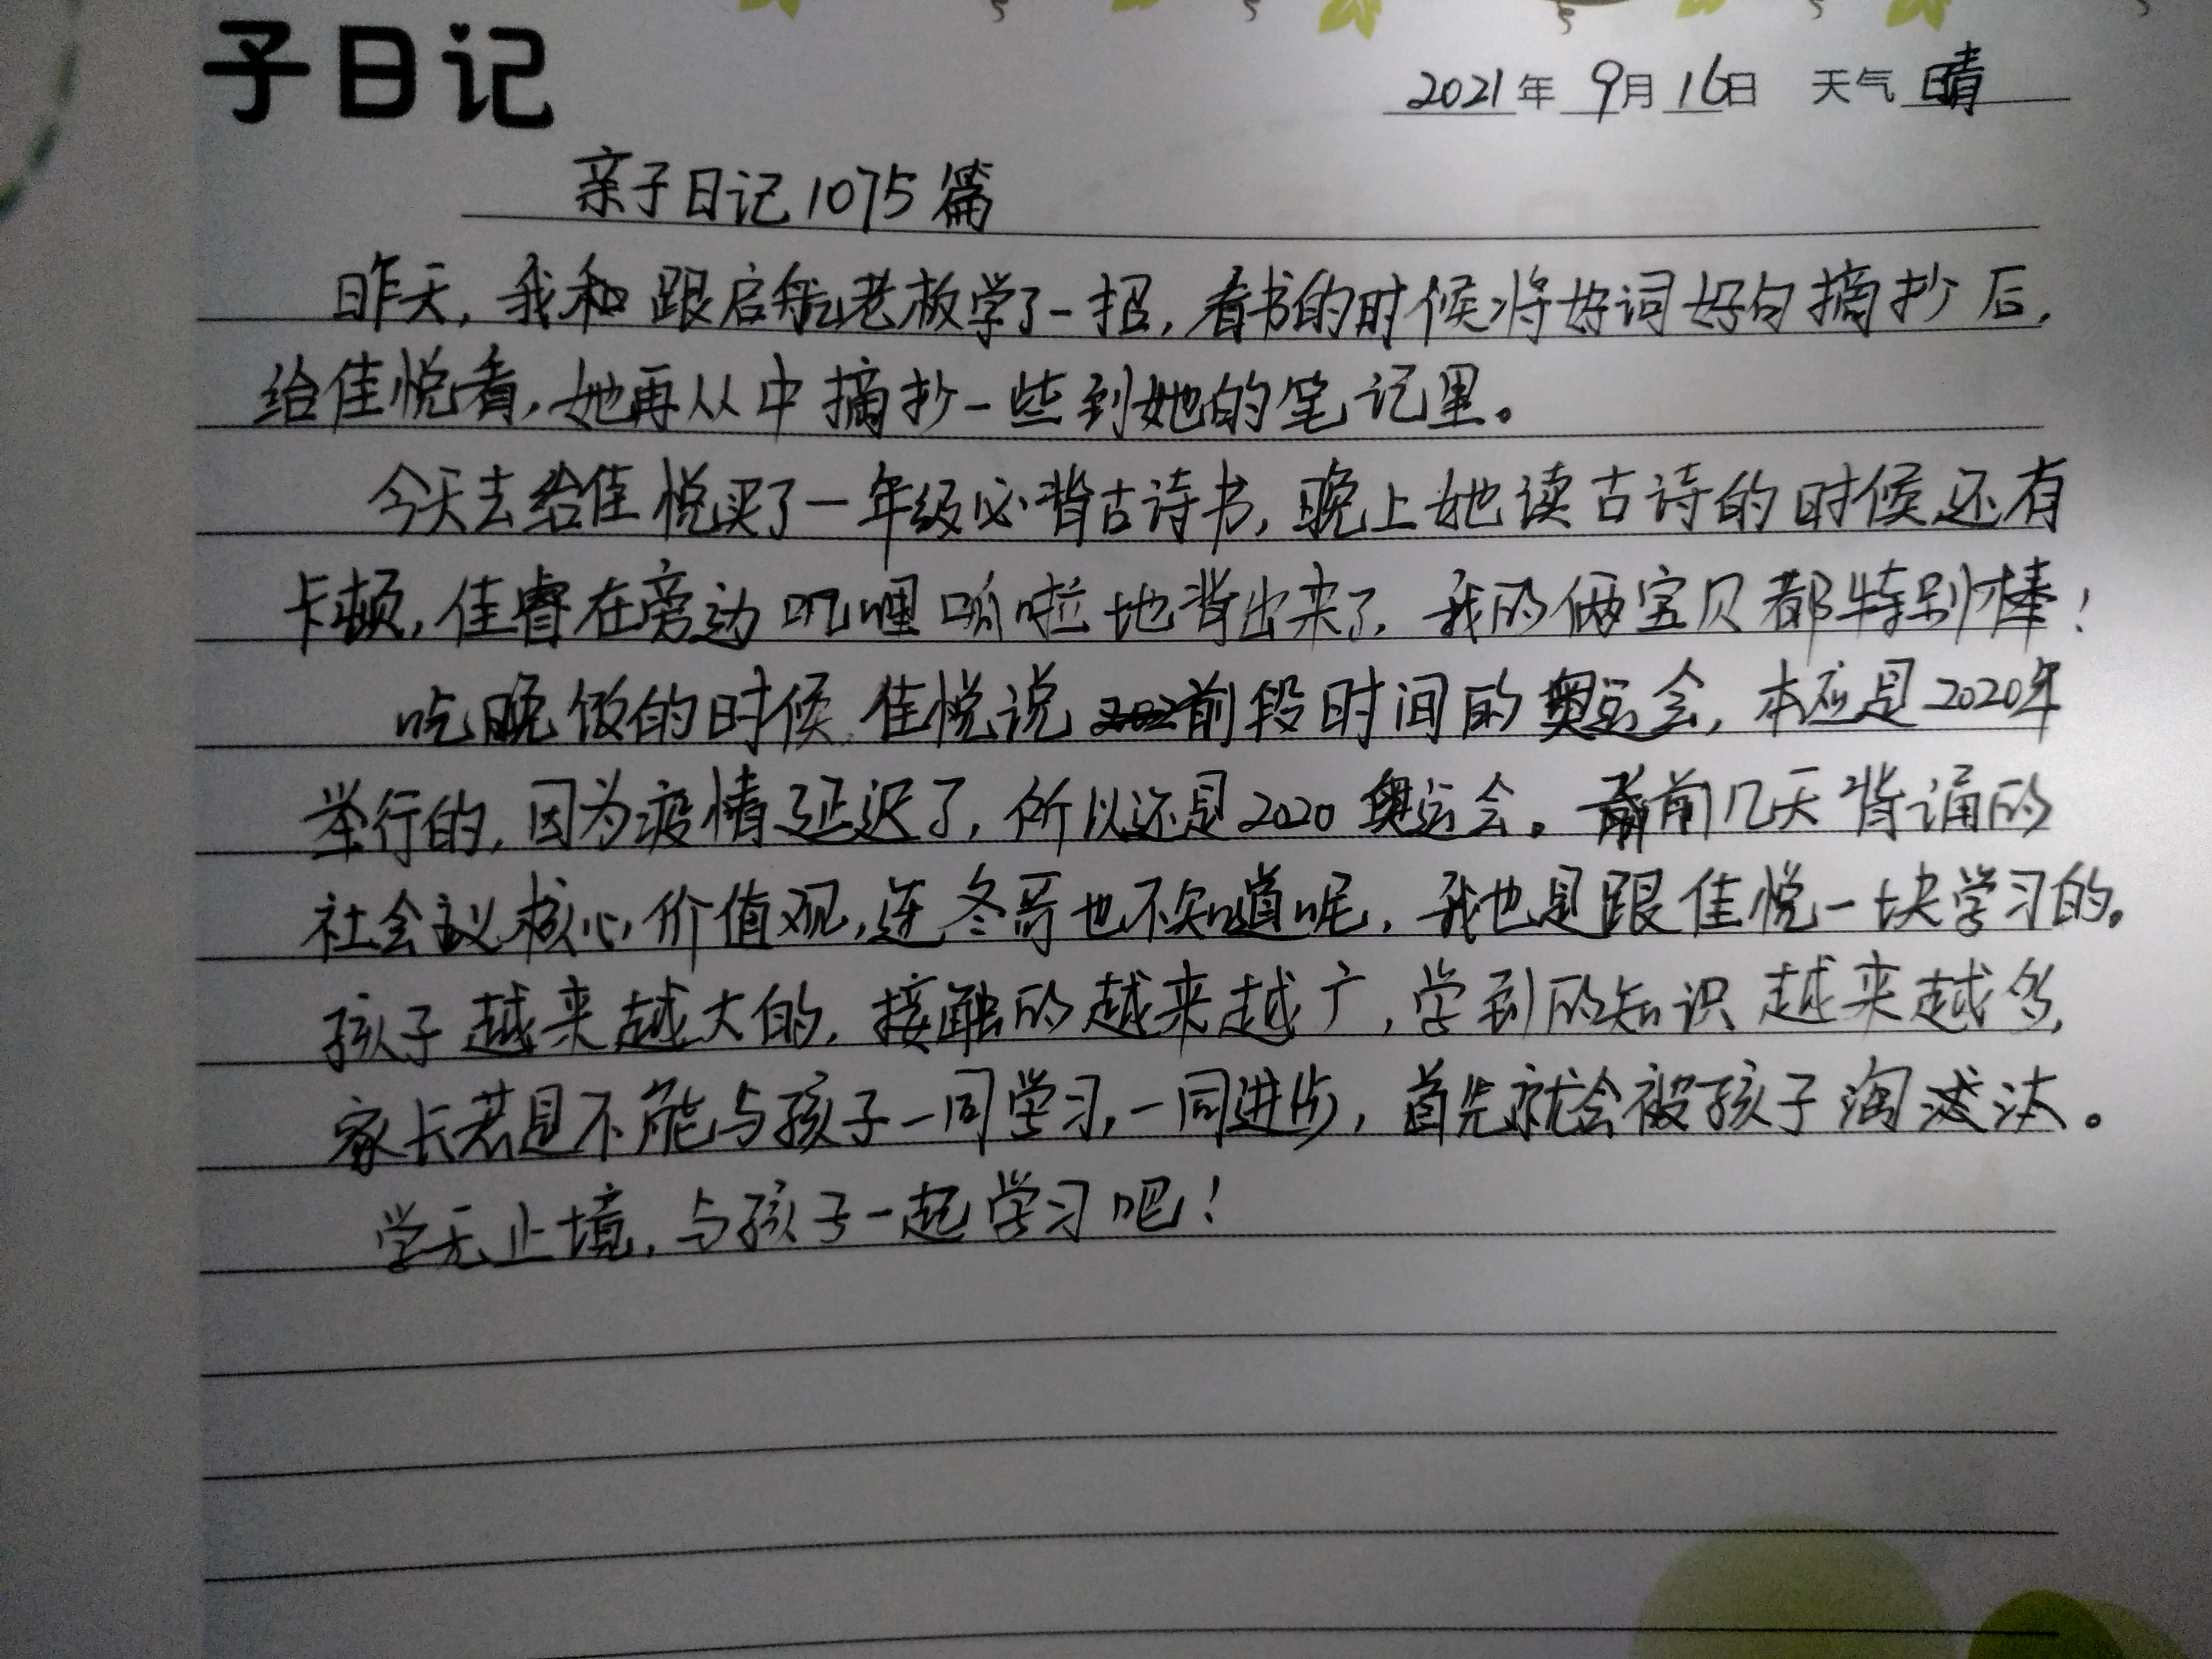 子日记
2021年 9月16日 天气 晴
亲子日记1075篇
昨天，我和 跟启航老板学了一招，看书的时候将好词好句摘抄后，
给佳悦看，她再从中摘抄一些到她的笔记里。
今天去给佳悦买了一年级必背古诗书，晚上她读古诗的时候还有
卡顿，佳睿在旁边叽哩呱啦地背出来了，我的俩宝贝都特别棒！
吃晚饭的时候，佳悦说前段时间的奥运会，本应是2020年
举行的，因为疫情延迟了，所以还是2020奥运会。前几天背诵的
社会主义核心价值观，连冬哥也不知道呢，我也是跟佳悦一块学习的。
孩子越来越大的，接触的越来越广，学到的知识越来越多，
家长若是不能与孩子一同学习，一同进步，首先就会被孩子淘汰。
学无止境，与孩子一起学习吧！